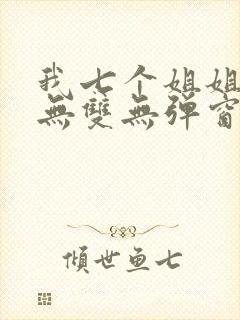 我七个姐姐
無雙無弹窗
倾世鱼七